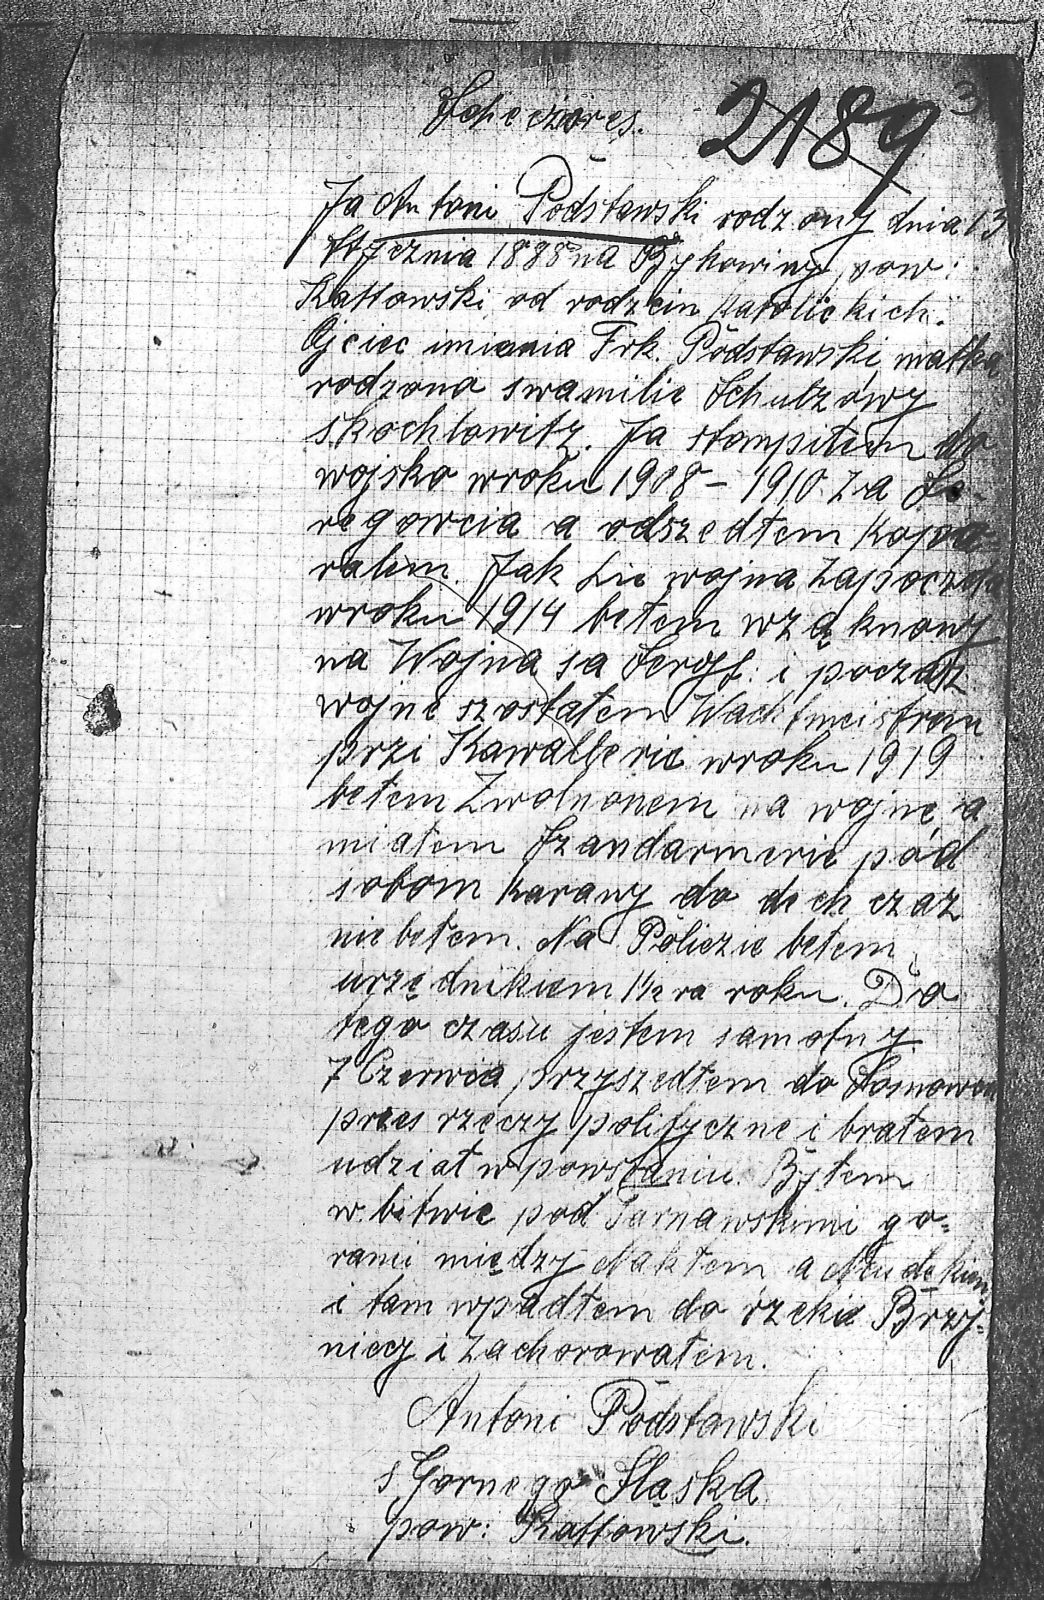 2189
Ja Antoni Podstawski rodzony dnia 13
Stycznia 1888 na Bykowiny, pow:
Kattowski od rodzcin Katolickich.
Ojciec imienia Frk. Podstawski, matka
rodzona swamilie Schulzowy
skochlowitz. Ja stompiłem do
wojska wroku 1908 – 1910 za Sc-
regowcia a odszedłem kapo=
ralem. Jak sie wojna zapoczeła
wroku 1914 bełem wząknowy
na Wojna sa Sergf: i poczasz
wojne szostałem Wachtmeistrem
przi Kawallerie wroku 1919
bełem Zwolnonem na wojne, a
miałem Szandarmerie pod
sobom karany do dech czaz
nie bełem. Na Policzie bełem
urzędnikiem 1½ ra roku. Do
tego czasu jestem samotny.
7 Czerwca przyszedłem do Sosnowca
przes rzeczy polityczne i brałem
udział w powstaniu. Byłem
w bitwie pod Tarnawskimi go=
rami między Nakłem a Neudekiem
i tam wpadłem do rzekie Bryj=
nicy i zachorowałem.
Antoni Podstawski
s Gornego Sląska
pow: Kattowski.